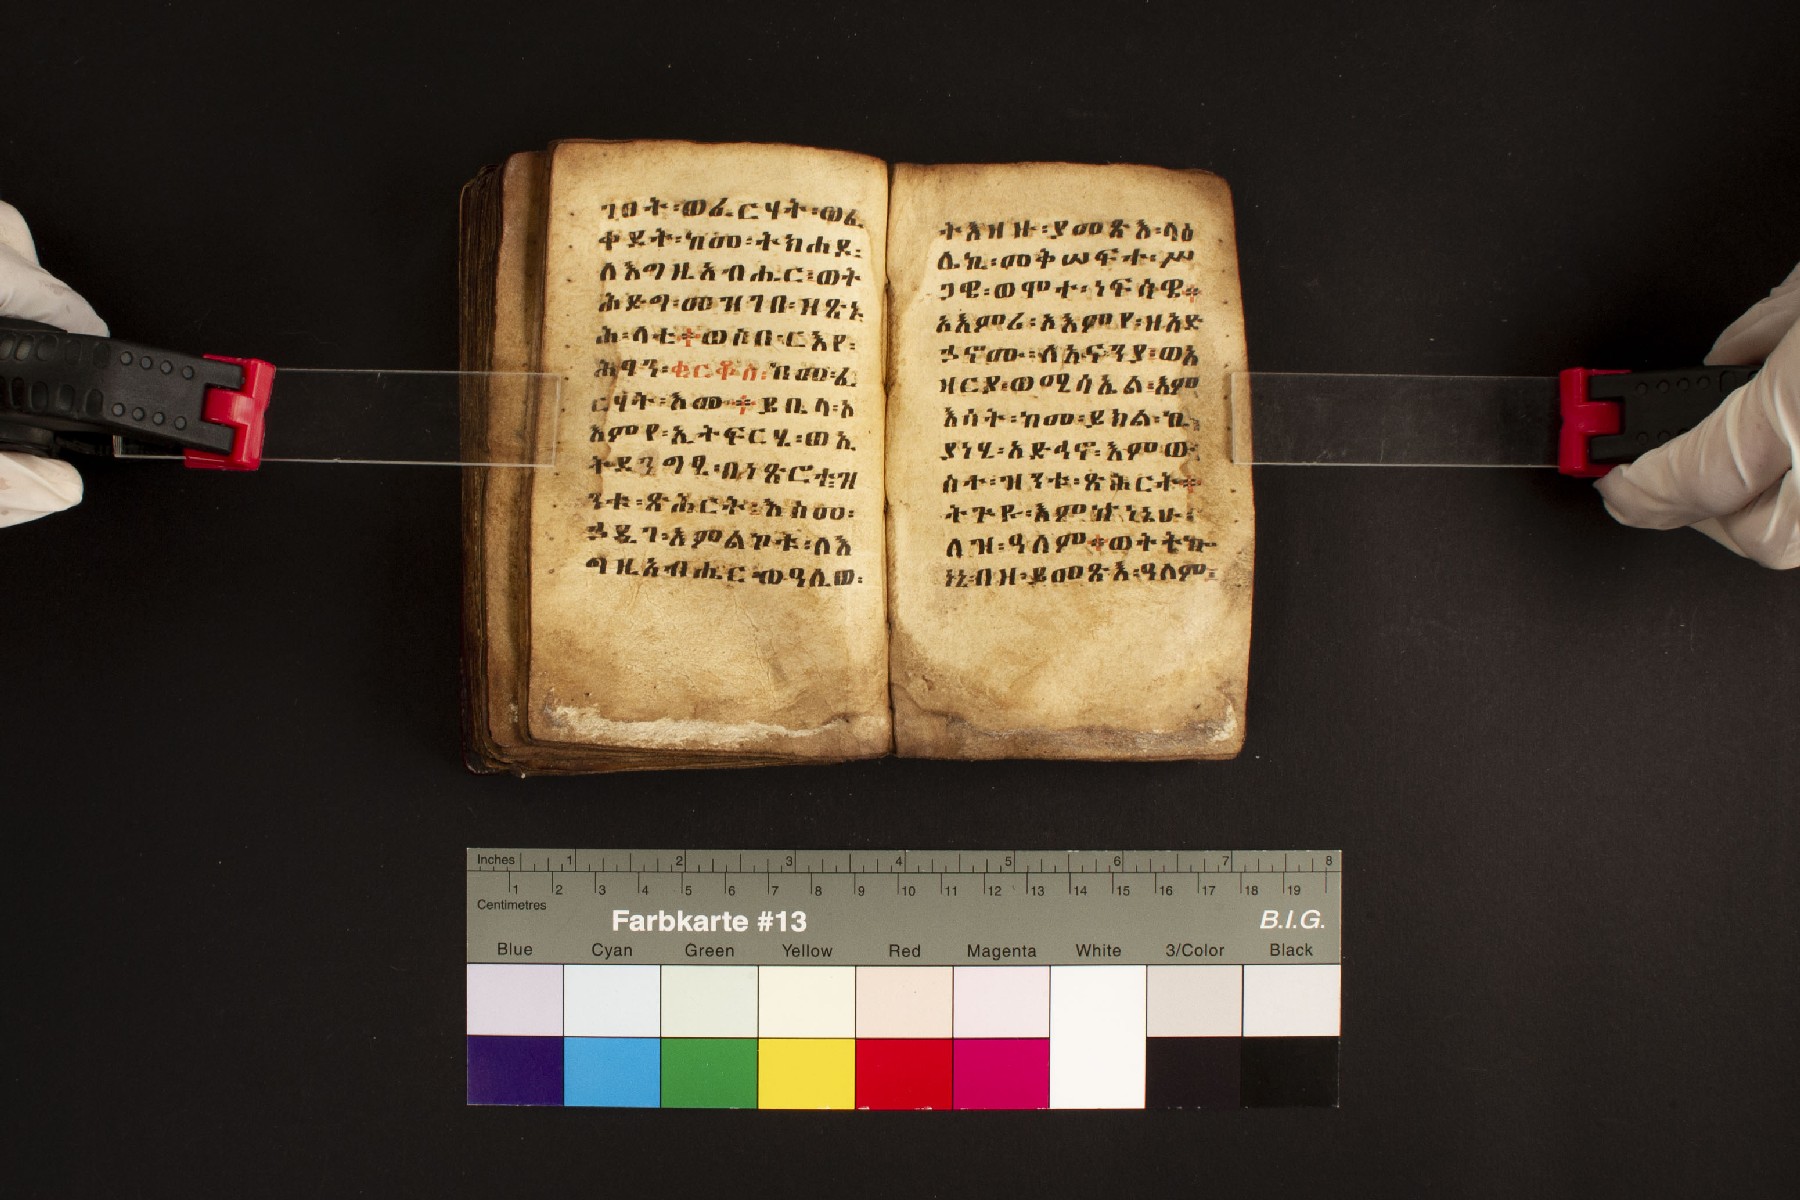 ገዐት፡ወፈርሃት፡ወፈ
ቀደት፡ከመ፡ትክሐደ፡
ለእግዚአብሔር፡ወት
ሕድግ፡መዝገበ፡ዝ
ሕ፡ላቲ፡ወሶበ፡ርእየ፡
ቂርቆስ፡ከመ፡ፈ
ርሃት፡እሙ፡ይቤላ፡አ
እምየ፡ኢትፍርሂ፡ወኢ
ትደንግፂ፡በነጽሮቲዝ
ንቱ፡ጽሕርት፡እስመ፡
ኃዲገ፡አምልኮቱ፡ለእ
ግዚአብሔር
ትእዛዙ፡ያመጽእ፡ላዕ
ሌኪ፡መቅሠፍተ፡ሥ
ጋዌ፡ወሞተ፡ነፍሳዌ
አእምሪ፡አእምየ፡ዘአድ
ኃኖሙ፡ለአናንያ፡ወአ
ዛርያ፡ወሚሳኤል፡እም
እሳት፡ከመ፡ይክል፡ኪ
ያነሂ፡አድኅኖ፡እምው
ስተ፡ዝንቱ፡ጽሕርት
ለዝ፡ዓለም፡ወትትኰ
ነኒ፡በዘ፡ይመጽእ፡ዓለም፡
Inches 1 2 3 4 5 6 7 8
1 2 3 4 5 6 7 8 9 10 11 12 13 14 15 16 17 18 19
Centimetres
Farbkarte #13 B.I.G.
Blue Cyan Green Yellow Red Magenta White 3/Color Black